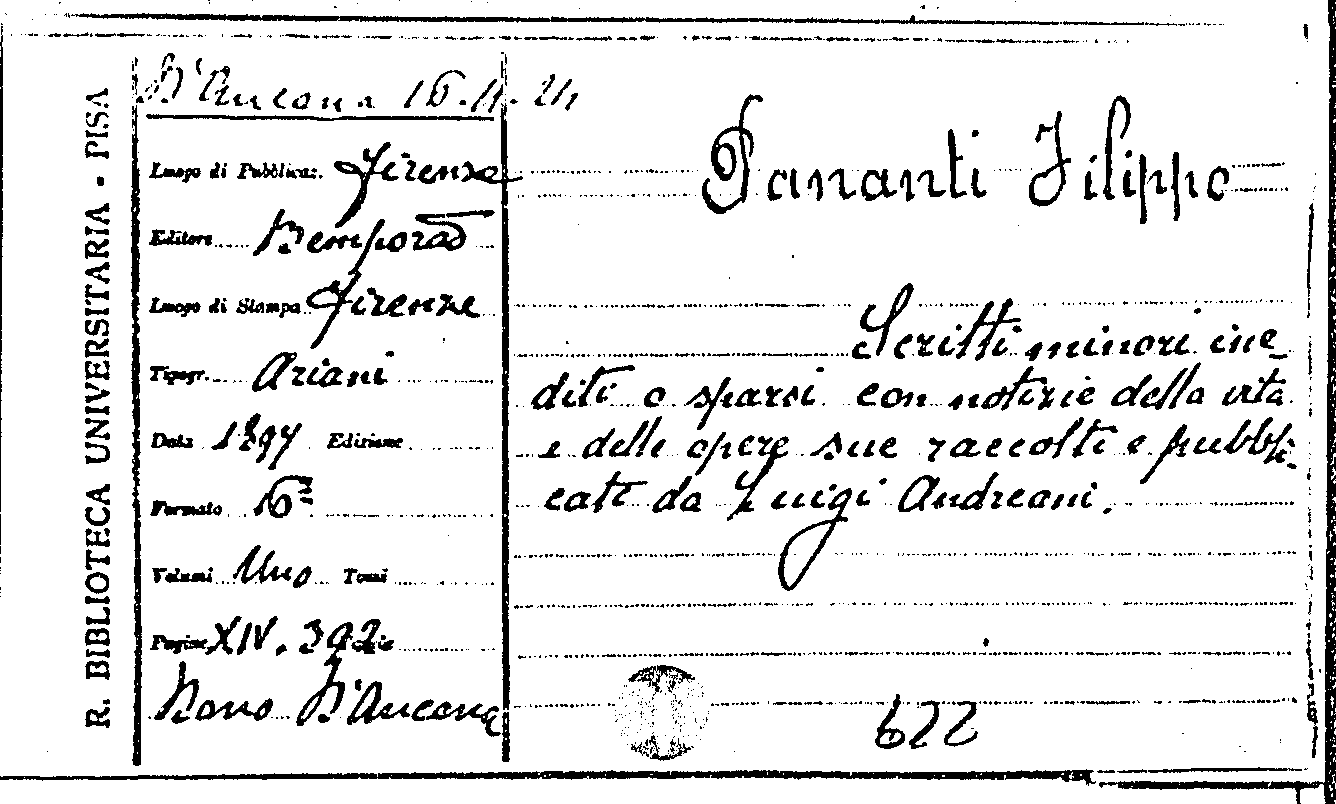 R. BIBLIOTECA UNIVERSITARIA - PISA
D'Ancona 16.4.24
Luogo di Pubblicaz. Firenze
Editore Bemporad
Luogo di Stampa Firenze
Tipogr. Ariani
Data 1897 Edizione
Formato 16º
Volumi Uno Tomi
Pagine XIV. 392
Dono D'Ancona
Pananti Filippo
Scritti minori ine-
diti o sparsi con notizie della vita
e delle opere sue raccolti e pubbli-
cati da Luigi Andreani.
622